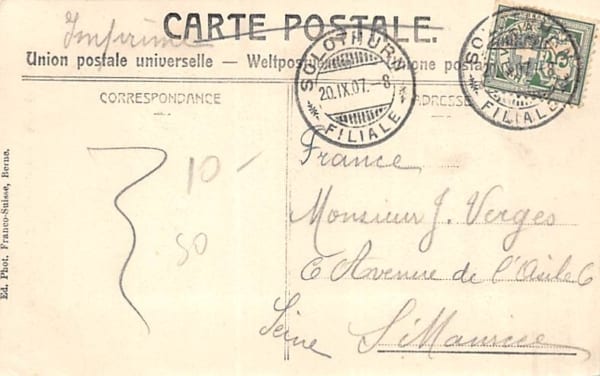 Imprimé
CARTE POSTALE.
Union postale universelle — Weltpostverein — Unione postale
CORRESPONDANCE
ADRESSE
SOLOTHURN
20.IX.07.-8
FILIALE
SOLOTHURN
20.IX.07.-8
FILIALE
France
Monsieur J. Verges
6 Avenue de l'Asile 6
St Maurice
Seine
10-
50
Ed. Phot. Franco-Suisse, Berne.